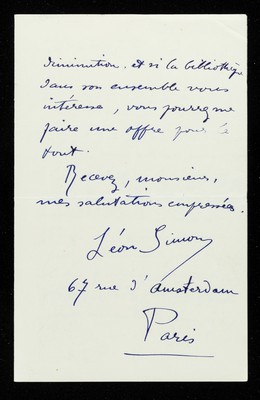 diminution. et si la bibliothèque
dans son ensemble vous
intéresse, vous pourrez me
faire une offre pour le
tout.
Recevez, monsieur,
mes salutations empressées.
Léon Simon
67 rue d'amsterdam
Paris